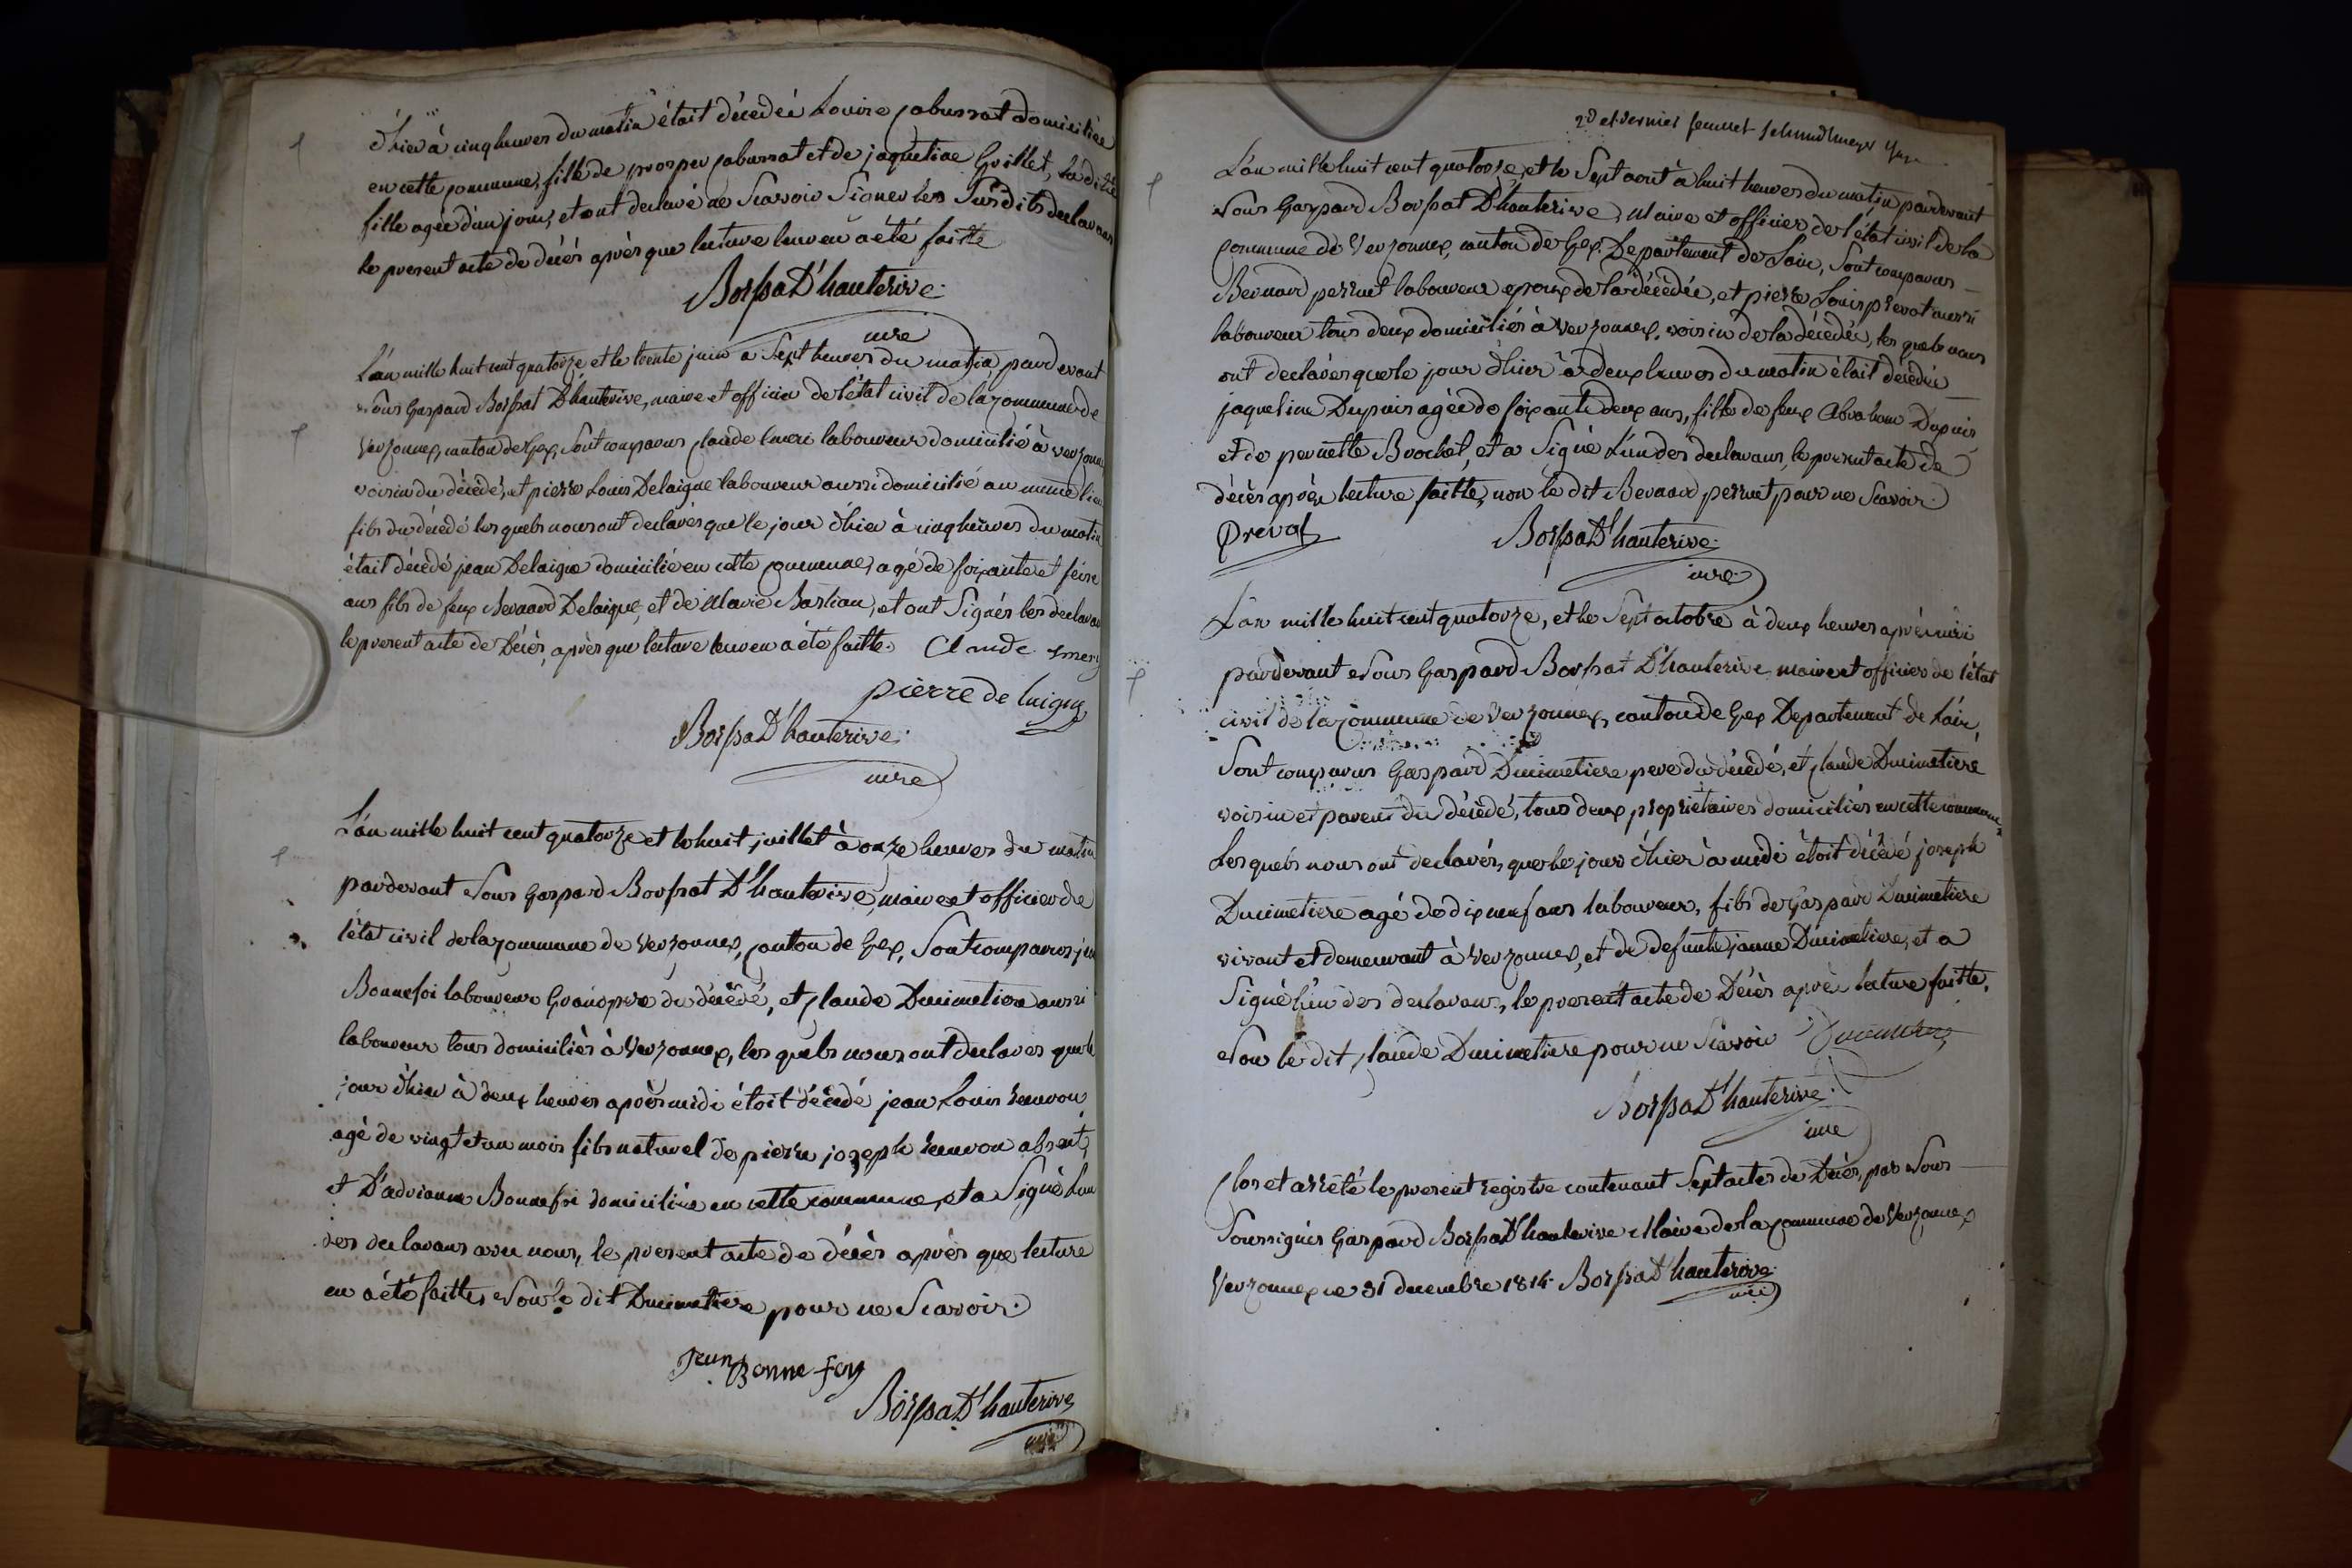 d'hier à cinq heures du matin était décédée Louise Cabussat domiciliée
en cette commune, fille de prosper Cabussat et de jaquetine Grillet, la dite
fille agée d'un jour, et ont déclaré ne Scavoir Signer les Susdits declarans
le present acte de décés après que lecture leur en a été faitte
BorssaD'hauterive
mre
L'an mille huit cent quatorze et le trente juin a Sept heures du matin pardevant
Nous Gaspard Borssat D'hauterive, maire et officier de l'état civil de la commune de
Verzonnex, canton de Gex, Sont comparus Claude Emeri laboureur domicilié à verzonnex
voisin du décédé, et pierre Louis Delaigue laboureur aussi domicilié au meme lieu
fils du décédé les quels nous ont declarés que le jour d'hier à cinq heures du matin
était décédé jean Delaigue domicilié en cette commune, agé de soixante et seize
ans fils de feux Bernard Delaigue, et de Marie Bastian, et ont Signés les declarans
le present acte de Décés, après que lecture leur en a été faitte. Claude emery
pierre de luigue
BorssaD'hauterive
mre
L'an mille huit cent quatorze et le huit juillet à onze heures du matin
pardevant Nous Gaspard Borssat D'hauterive, maire et officier de
l'état civil de la commune de Verzonnex, canton de Gex, Sont comparus jean
Bonnefoi laboureur Grandpere du décédé, et Claude Ducimetiere aussi
laboureur tous domiciliés à Verzonnex, les quels nous ont declarés que le
jour d'hier à deux heures après midi étoit décédé jean Louis
agé de vingt et un mois fils naturel de pierre joseph absent,
et D'adrianne Bonnefoi domiciliée en cette commune, et a Signé l'un
des declarans avec nous, le present acte de décès après que lecture
en a été faitte, Non le dit Ducimetiere pour ne Scavoir.
Jean Bonne foy
BorssaD'hauterive
mre
2d et dernier feuillet
L'an mille huit cent quatorze, et le Sept aout à huit heures du matin pardevant
Nous Gaspard Borssat D'hauterive, Maire et officier de l'état civil de la
Commune de Verzonnex, canton de Gex, Departement de Lain, Sont comparus
Bernard perruet laboureur epoux de la décédée, et pierre Louis prevot aussi
laboureur tous deux domiciliés à Verzonnex, voisin de la décédée, les quels nous
ont declarés que le jour d'hier à deux heures du matin était décédée
jaqueline Dupuis agée de soixante deux ans, fille de feux Abraham Dupuis
et de pernette Brochet, et a Signé L'un des declarans, le present acte de
décès après lecture faitte, non le dit Bernard perruet pour ne Scavoir.
Prevot
BorssaD'hauterive
mre
L'an mille huit cent quatorze, et le Sept octobre à deux heures après midi
pardevant Nous Gaspard Borssat D'hauterive maire et officier de l'état
civil de la Commune de Verzonnex, canton de Gex Departement de Lain,
Sont comparus Gaspard Ducimetiere pere du décédé, et Claude Ducimetiere
voisin et parent du décédé, tous deux propriétaires domiciliés en cette commune,
Les quels nous ont declarés, que le jour d'hier à midi étoit décédé joseph
Ducimetiere agé de dix neuf ans laboureur, fils de Gaspard Ducimetiere
vivant et demeurant à Verzonnex, et de defunte janne Ducimetiere, et a
Signé l'un des declarans, le present acte de Décès après lecture faitte,
Non le dit Claude Ducimetiere pour ne Scavoir Ducimetiere
BorssaD'hauterive
mre
Clos et arreté le present registre contenant Sept actes de Décès, par Nous
Soussignés Gaspard BorssaD'hauterive Maire de la Commune de Verzonnex
Verzonnex ce 31 decembre 1814. BorssaD'hauterive
mre